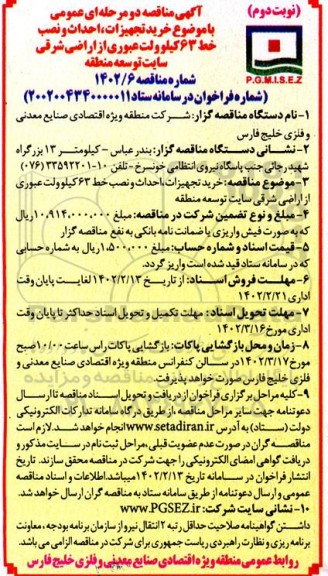 (نوبت دوم)
آگهی مناقصه دو مرحله ای عمومی
با موضوع خرید تجهیزات، احداث و نصب
خط ۶۳ کیلو ولت عبوری از اراضی شرقی
سایت توسعه منطقه
شماره مناقصه ۱۴۰۲/۶
P.G.M.I.S.E.Z
(شماره فراخوان در سامانه ستاد ۲۰۰۲۰۰۴۳۴۰۰۰۰۰۱۱)
۱- نام دستگاه مناقصه گزار: شرکت منطقه ویژه اقتصادی صنایع معدنی
و فلزی خلیج فارس
۲- نشانی دستگاه مناقصه گزار: بندرعباس - کیلومتر ۱۳ بزرگراه
شهید رجائی جنب پاسگاه نیروی انتظامی خونسرخ - تلفن ۱۰-۳۳۵۹۲۲۰۱ (۰۷۶)
۳- موضوع مناقصه: خرید تجهیزات، احداث و نصب خط ۶۳ کیلو ولت عبوری
از اراضی شرقی سایت توسعه منطقه
۴- مبلغ و نوع تضمین شرکت در مناقصه: مبلغ ۱۰,۹۱۴,۰۰۰,۰۰۰ ریال
که به صورت فیش واریزی یا ضمانت نامه بانکی به نفع مناقصه گزار
۵- قیمت اسناد و شماره حساب: مبلغ ۱,۵۰۰,۰۰۰ ریال به شماره حسابی
که در سامانه ستاد قید شده است واریز گردد.
۶- مهلت فروش اسناد: از تاریخ ۱۴۰۲/۲/۱۳ لغایت پایان وقت
اداری ۱۴۰۲/۲/۲۱
۷- مهلت تحویل اسناد: مهلت تکمیل و تحویل اسناد حداکثر تا پایان وقت
اداری مورخ ۱۴۰۲/۳/۱۶
۸- زمان و محل بازگشایی پاکات: بازگشایی پاکات راس ساعت ۱۰/۰۰ صبح
مورخ ۱۴۰۲/۳/۱۷ در سالن کنفرانس منطقه ویژه اقتصادی صنایع معدنی و
فلزی خلیج فارس صورت خواهد پذیرفت.
۹- کلیه مراحل برگزاری فراخوان از دریافت و تحویل اسناد مناقصه تا ارسال
دعوتنامه جهت سایر مراحل مناقصه، از طریق درگاه سامانه تدارکات الکترونیکی
دولت (ستاد) به آدرس www.setadiran.ir انجام خواهد شد. لازم است
مناقصه گران در صورت عدم عضویت قبلی، مراحل ثبت نام در سایت مذکور و
دریافت گواهی امضای الکترونیکی را جهت شرکت در مناقصه محقق سازند. تاریخ
انتشار فراخوان در سامانه تاریخ ۱۴۰۲/۲/۱۳ میباشد. اطلاعات و اسناد مناقصه
عمومی و ارسال دعوتنامه از طریق سامانه ستاد به مناقصه گران ارسال خواهد شد.
۱۰- نشانی سایت شرکت: www.PGSEZ.ir
داشتن گواهینامه صلاحیت حداقل رتبه ۲ انتقال نیرو از سازمان برنامه بودجه، معاونت
برنامه ریزی و نظارت راهبردی ریاست جمهوری برای شرکت در مناقصه الزامی می باشد.
روابط عمومی منطقه ویژه اقتصادی صنایع معدنی و فلزی خلیج فارس